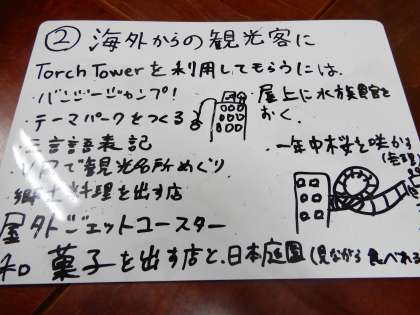 ② 海外からの観光客に
Torch Towerを利用してもらうには.
・バンジージャンプ!
・テーマパークをつくる
言語表記
で観光名所めぐり
郷土料理を出す店
屋外ジェットコースター
和菓子を出す店と、日本庭園(見ながら食べれる
屋上に水族館を
おく.
一年中桜を咲かす